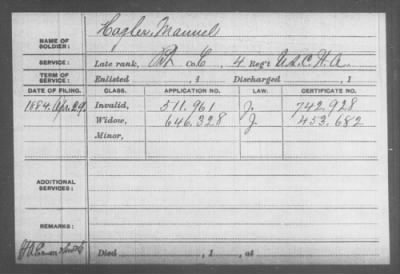 NAME OF SOLDIER: Hagler, Manuel
SERVICE: Late rank, Pvt Co. C, 4 Reg't U.S.C.H.A.
TERM OF SERVICE: Enlisted , 1 Discharged , 1
DATE OF FILING. CLASS. APPLICATION NO. LAW. CERTIFICATE NO.
1884, Apr. 29 Invalid, 511.961 J. 742.928
Widow, 646.328 J 453.682
Minor,
ADDITIONAL SERVICES:
REMARKS:
Died , 1 , at